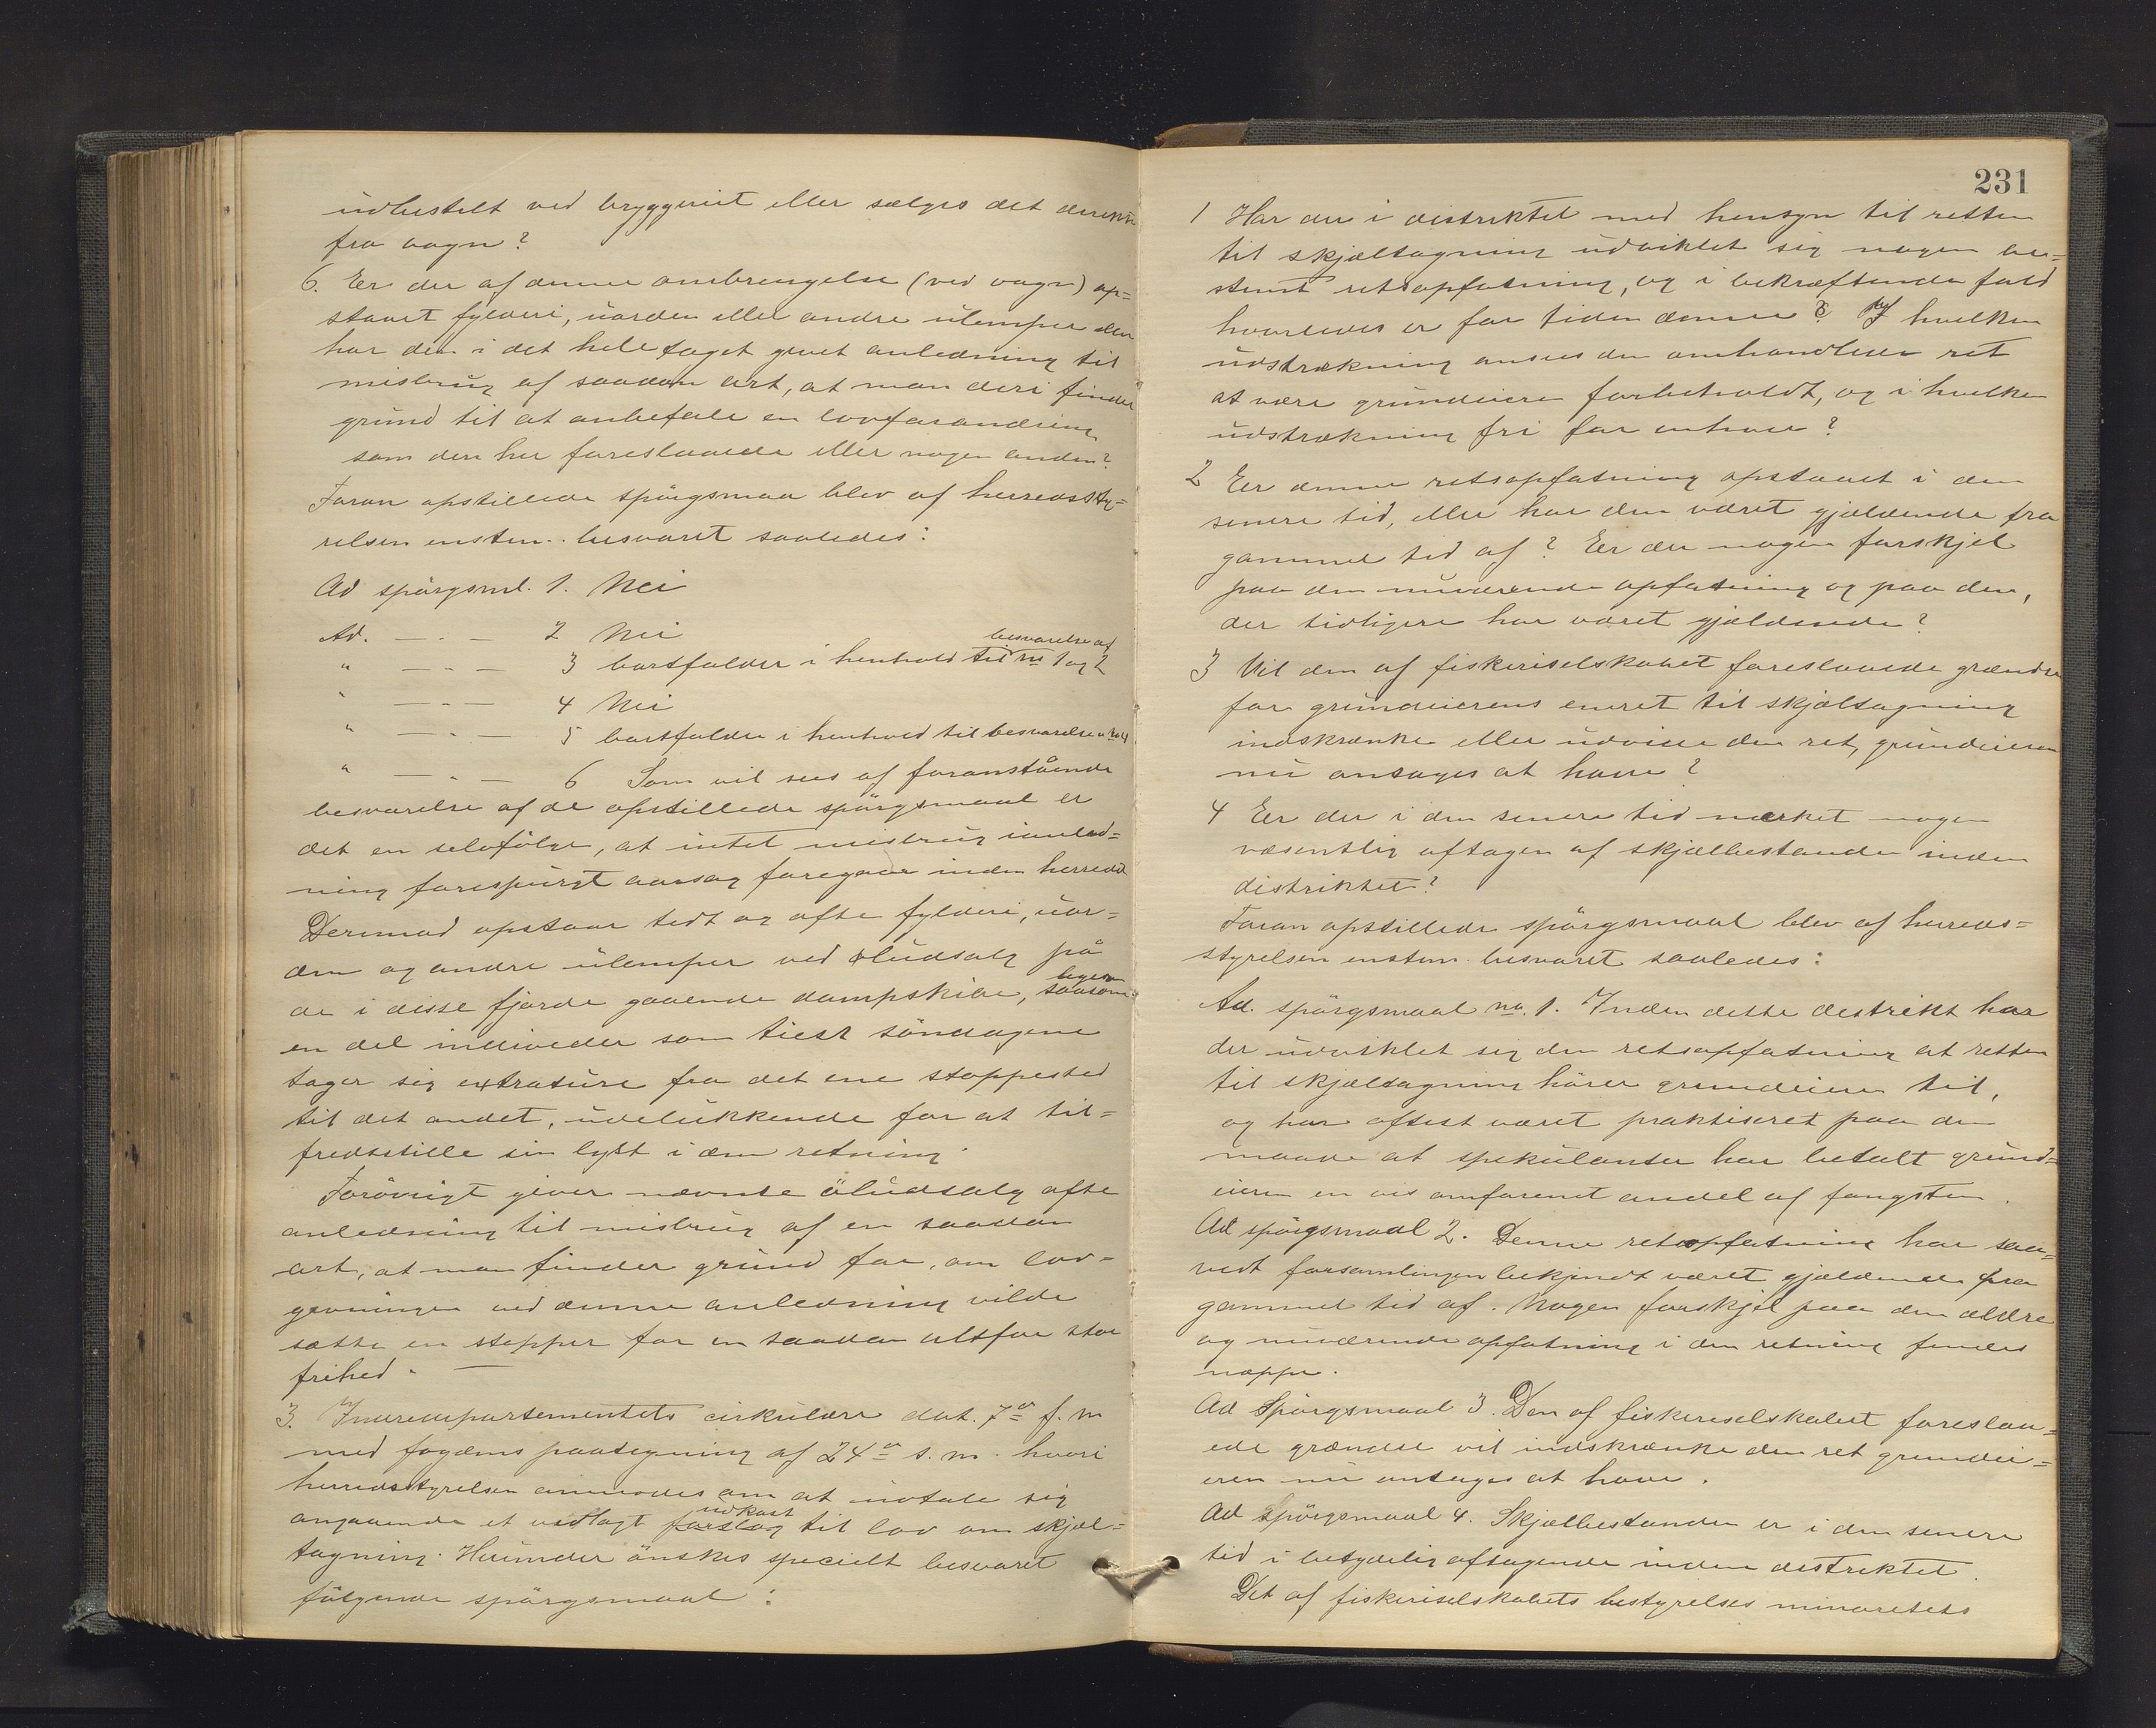 udbestelt ved bryggeriet eller sælges det direkte
fra vogn?
6. Er der af denne ombrengelse (ved vogn) op=
staaet fylderi, uorden eller andre ulemper eller
har den i det hele taget givet anledning til
misbrug af saadan art, at man deri finder
grund til at anbefale en lovforandring
som den her foreslaaede eller nogen anden?
Foran opstillede spørgsmaa blev af herredssty=
relsen enstem. besvaret saaledes:
Ad spørgsml. 1. Nei
Ad. — . — 2 Nei
" — . — 3 bortfalder i henhold til besvarelse af no 1 og 2
" — . — 4 Nei
" — . — 5 bortfalder i henhold til besvarelse no 4
" — . — 6 Som vil sees af foranstående
besvarelse af de opstillede spørgsmaal er
det en selvfølge, at intet misbrug i anled=
ning forespurgt aarsag foregaar inden herredet
Derimod opstaar tidt og ofte fylderi, uor=
den og andre ulemper ved øludsalg på
de i disse fjorde gaaende dampskibe, ligesom
en del individer som tiest söndagene
tager sig extrature fra det ene stoppested
til det andet, udelukkende for at til=
fredsstille sin lyst i den retning.
Forövrigt giver nævnte öludsalg ofte
anledning til misbrug af en saadan
art, at man finder grund for, om lov=
givningen ved denne anledning vilde
sætte en stopper for en saadan altfor stor
frihed. —
3. Indredepartementets cirkulære dat. 7de f. m
med fogdens paategning af 24de s. m. hvori
herredsstyrelsen anmodes om at udtale sig
angaaende et vedlagt udkast til lov om skjæl=
tagning. Herunder önskes specielt besvaret
fölgende spörgsmaal:
231
1 Har der i distriktet med hensyn til retten
til skjæltagning udviklet sig nogen be=
stemt retsopfatning, og i bekræftende fald
hvorledes er for tiden denne? I hvilken
udstrækning ansees den omhandlede ret
at være grundeieren forbeholdt, og i hvilken
udstrækning fri for enhver?
2 Er denne retsopfatning opstaaet i den
senere tid, eller har den været gjældende fra
gammel tid af? Er der nogen forskjel
paa den nuværende opfatning og paa den,
der tidligere har været gjældende?
3 Vil den af fiskeriselskabet foreslaaede grændse
for grundeierens eneret til skjæltagning
indskrænke eller udvide den ret, grundeieren
nu antages at have?
4 Er der i den senere tid mærket nogen
væsentlig aftagen af skjælbestanden inden
distriktet?
Foran opstillede spörgsmaal blev af herreds=
styrelsen enstem. besvaret saaledes:
Ad. spörgsmaal no. 1. Inden dette destrikt har
der udviklet sig den retsopfatning at retten
til skjæltagning hörer grundeieren til,
og har oftest været praktiseret paa den
maade at spekulanter har betalt grund=
eieren en vis omforenet andel af fangsten.
Ad spörgsmaal 2. Denne retsopfatning har saa=
vidt forsamlingen bekjendt været gjældende fra
gammel tid af. Nogen forskjel paa den ældre
og nuværende opfatning i den retning findes
neppe.
Ad Spörgsmaal 3. Den af fiskeriselskabet foreslaa=
ede grændse vil indskrænke den ret grundei=
eren nu antages at have.
Ad Spörgsmaal 4. Skjælbestanden er i den senere
tid i betydelig aftagende inden destriktet.
Det af fiskeriselskabets bestyrelses minoritets